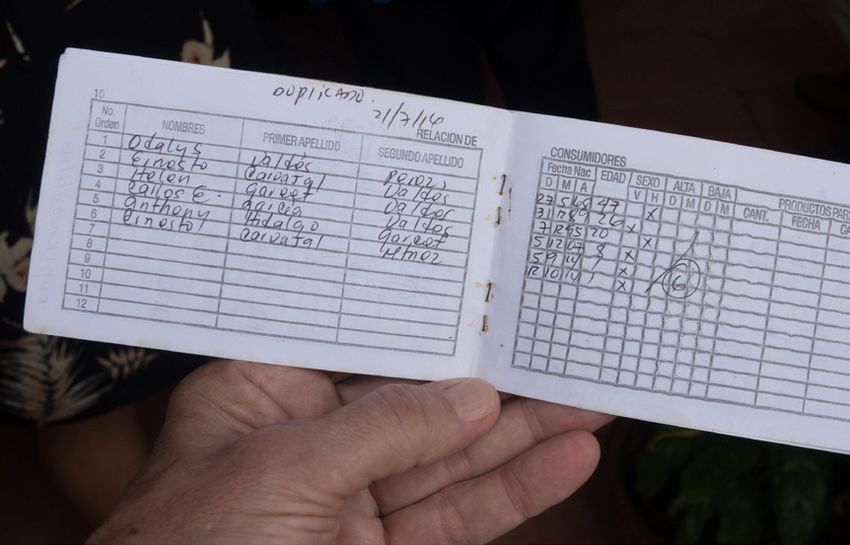 10
DUPLICADO.
21/7/14
RELACION DE
No. Orden NOMBRES PRIMER APELLIDO SEGUNDO APELLIDO
1 Odalys Valdés Perez
2 Ernesto Carvajal Valdes
3 Helen Valdes
4 Carlos E. Garcia Valdes
5 Anthony Hidalgo
6 Ernesto Carvajal Mtnez
7
8
9
10
11
12
CONSUMIDORES
Fecha Nac EDAD SEXO ALTA BAJA PRODUCTOS PAR
D M A V H D M D M CANT. FECHA CA
27 5 68 47 x
31 12 89 26 x
7 12 95 20 x
5 12 07 8 x
5 9 14 1 x
12 10 14 1 x
6